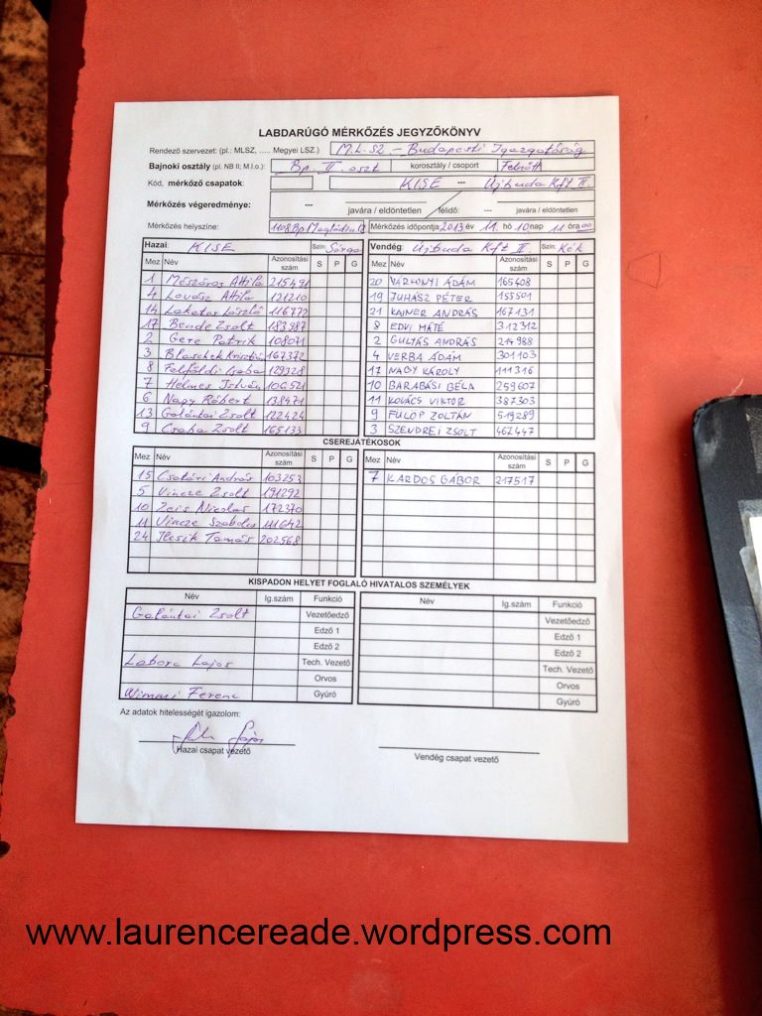 LABDARÚGÓ MÉRKŐZÉS JEGYZŐKÖNYV
Rendező szervezet: (pl.: MLSZ, ..... Megyei LSZ.) M.L.SZ. - Budapesti Igazgatóság
Bajnoki osztály (pl. NB II; M.I.o.): Bp. II. oszt korosztály / csoport Felnőtt
Kód, mérkőző csapatok: KISE --- Újbuda Kft II.
Mérkőzés végeredménye: --- javára / eldöntetlen félidő: --- javára / eldöntetlen
Mérkőzés helyszíne: 1108 Bp Mérkőzés időpontja 2013 év 11. hó 10 nap 11 óra 00
Hazai: KISE Szín: Sárga
Mez Név Azonosítási szám S P G
1 Mészáros Attila 215491
4 Lovász Attila 121210
14 Lakatos László 116772
17 Bende Zsolt 183987
2 Gere Patrik 108071
3 Blaschek Krisztián 167372
8 Felföldi Csaba 129328
7 Helmes István 106521
6 Nagy Róbert 138471
13 Galántai Zsolt 122424
9 Csaba Zsolt 165133
Vendég: Újbuda Kft II. Szín: Kék
Mez Név Azonosítási szám S P G
20 VÁRKONYI ÁDÁM 165408
19 JUHÁSZ PÉTER 155501
21 KAINER ANDRÁS 167131
8 EDVI MÁTÉ 312312
2 GULYÁS ANDRÁS 214988
4 VERBA ÁDÁM 301103
17 NAGY KÁROLY 111316
10 BARABÁSI BÉLA 259607
11 KOVÁCS VIKTOR 387303
9 FÜLÖP ZOLTÁN 519289
3 SZENDREI ZSOLT 467447
CSEREJÁTÉKOSOK
Mez Név Azonosítási szám S P G
15 András 103253
5 Vincze Zsolt 191292
10 Zeis Nicolas 172370
11 Vincze Szabolcs 111642
24 Ilcsik Tamás 202568
Mez Név Azonosítási szám S P G
7 KARDOS GÁBOR 217517
KISPADON HELYET FOGLALÓ HIVATALOS SZEMÉLYEK
Név Ig.szám Funkció
Galántai Zsolt Vezetőedző
Edző 1
Edző 2
Labora Lajos Tech. Vezető
Orvos
Ferenc Gyúró
Név Ig.szám Funkció
Vezetőedző
Edző 1
Edző 2
Tech. Vezető
Orvos
Gyúró
Az adatok hitelességét igazolom:
Hazai csapat vezető
Vendég csapat vezető
www.laurencereade.wordpress.com